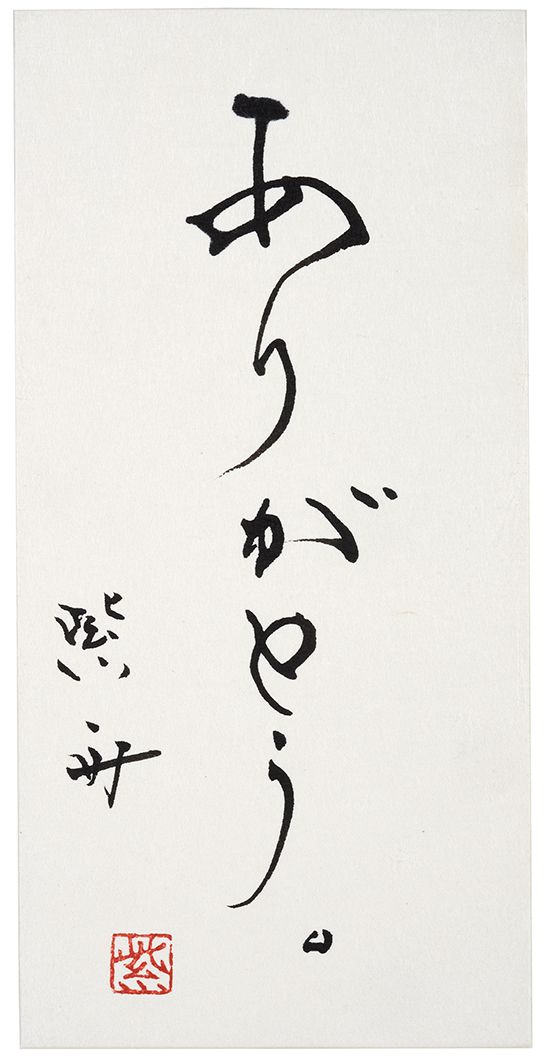 ありがとう。
紫舟
紫